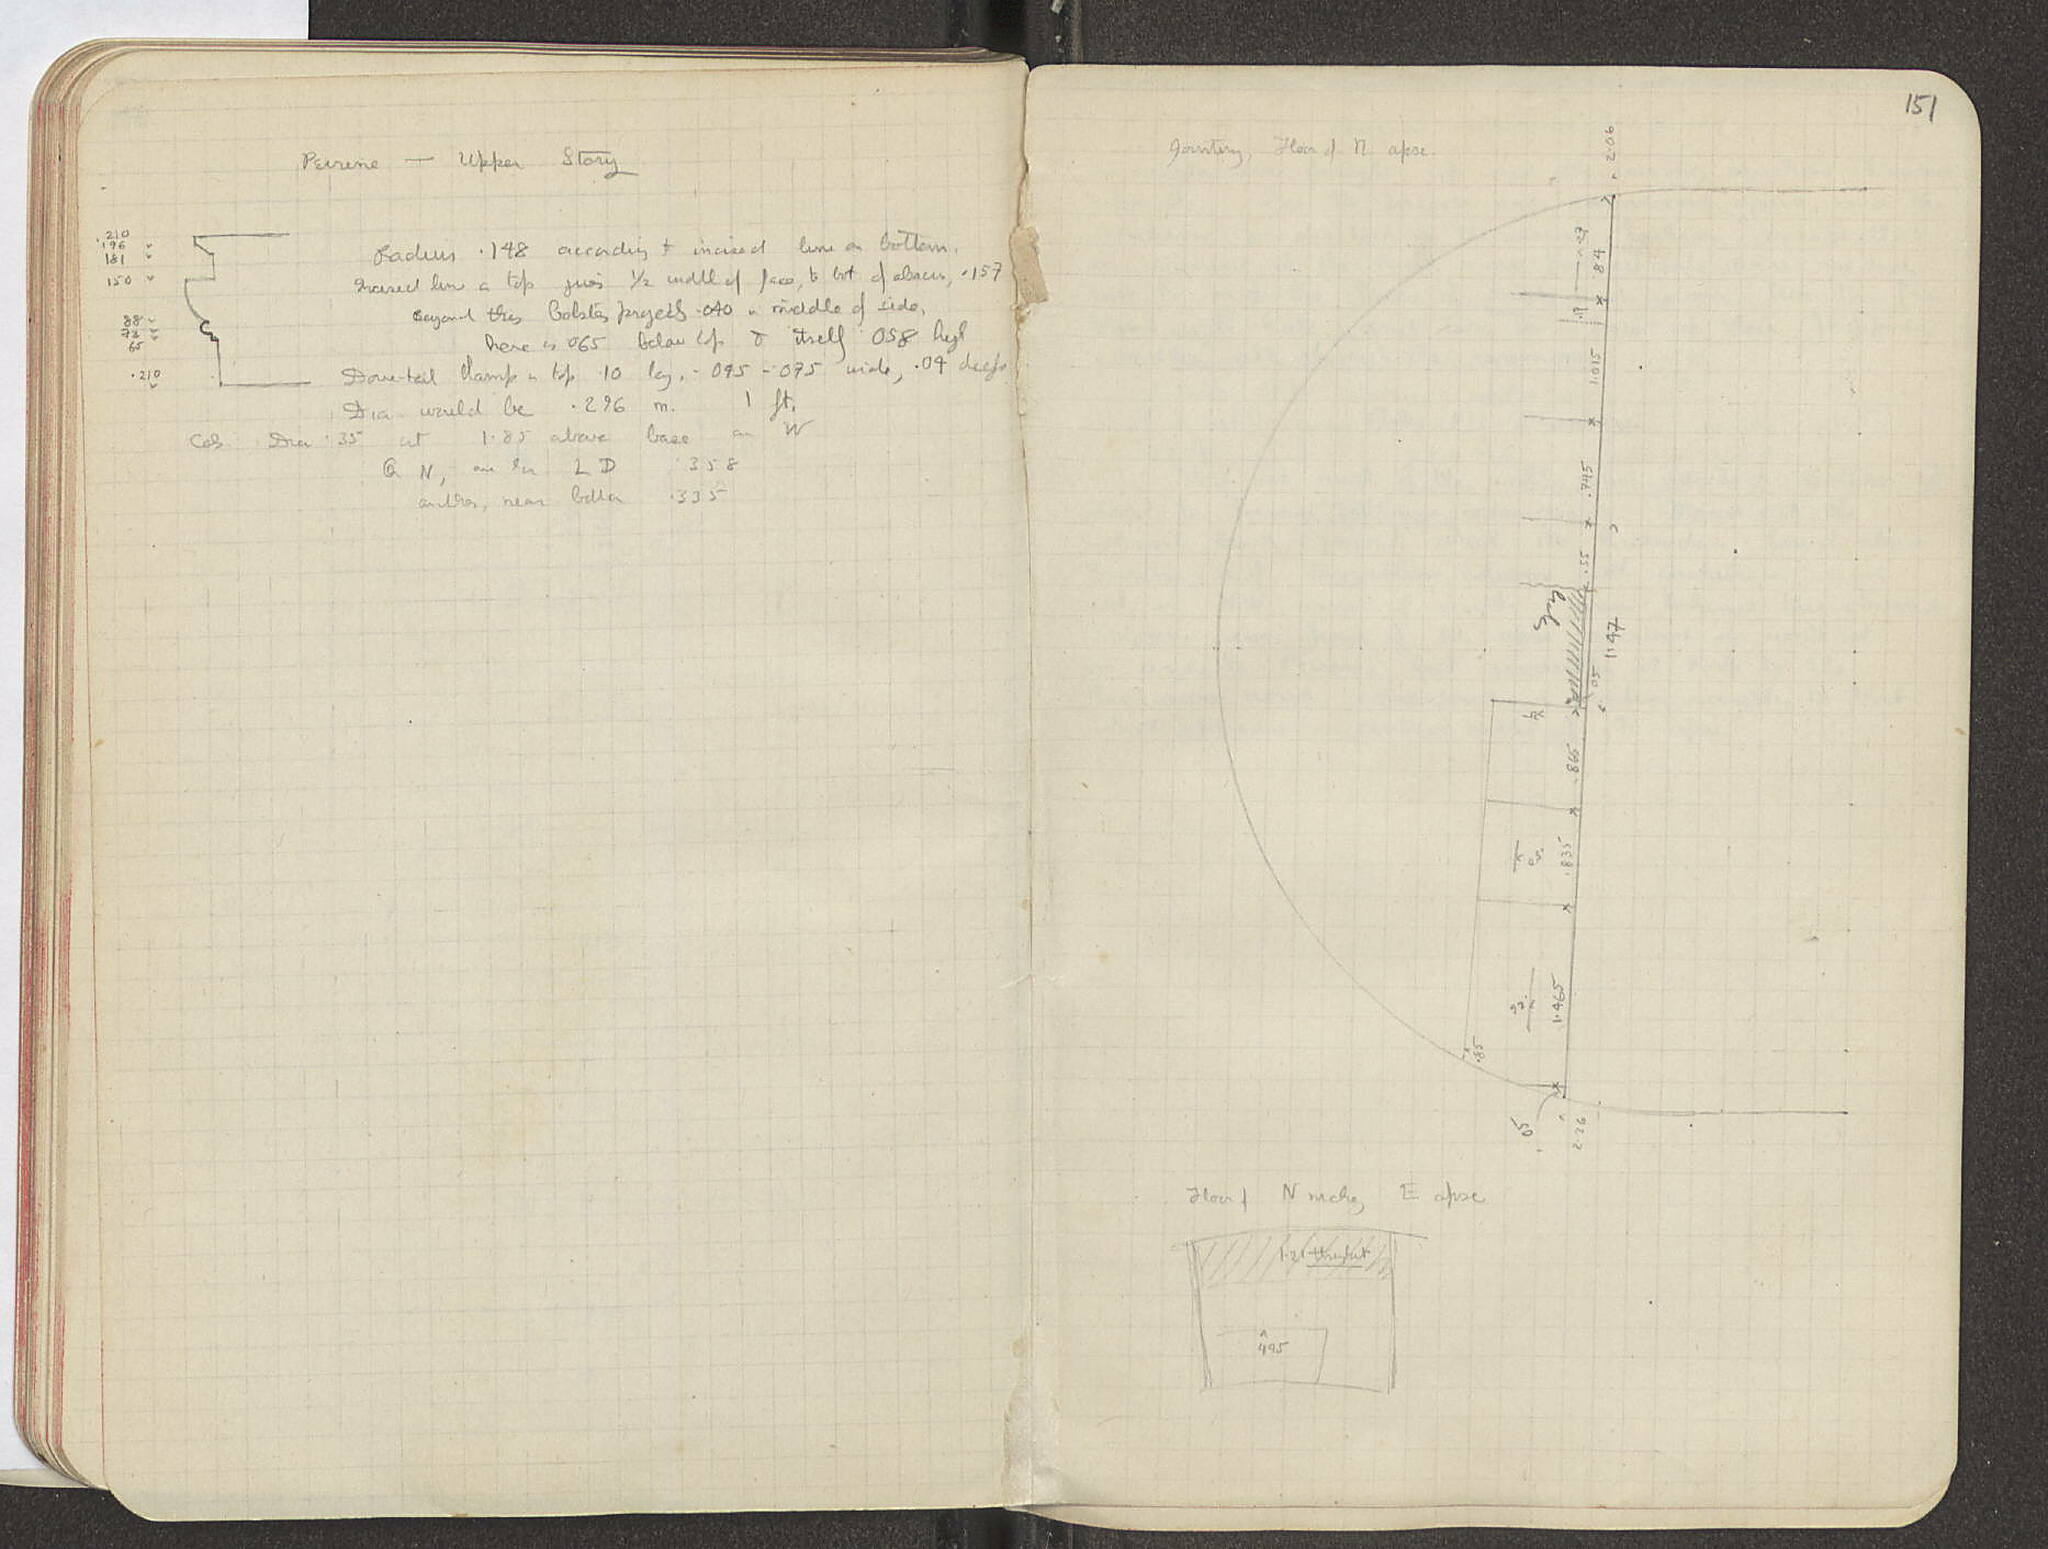 Peirene — Upper Story
.210
196
181
150
88
73
65
.210
Radius .148 according to incised line on bottom.
Incised line on top gives 1/2 width of face, to bot of abacus, .157
Beyond this bolster projects .040 in middle of side,
here is 065 below top & itself .058 high
Dove-tail clamp in top .10 long, .095 - .075 wide, .04 deep
Dia would be .296 m. 1 ft.
Col. Dia .35 at 1.85 above base on W
On N, 358
another, near bottom .335
151
Jointing, Floor of N apse.
2.06
.84
1.015
.745
.55
1.47
.05
.865
.835
1.465
.85
.05
2.26
Floor of N niche, E apse
1.21
.495